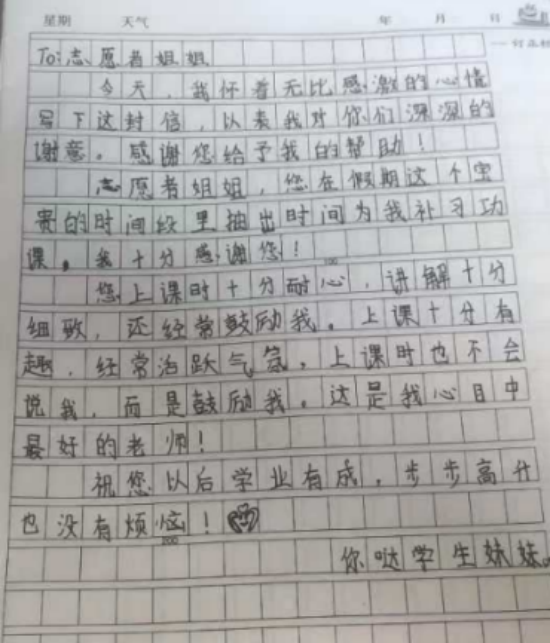 星期 天气 年 月 日
To:志愿者姐姐
今天，我怀着无比感激的心情
写下这封信，以表我对你们深深的
谢意。感谢您给予我的帮助！
志愿者姐姐，您在假期这个宝
贵的时间段里抽出时间为我补习功
课，我十分感谢您！
100
您上课时十分耐心，讲解十分
细致，还经常鼓励我。上课十分有
趣，经常活跃气氛，上课时也不会
说我，而是鼓励我。这是我心目中
最好的老师！
祝您以后学业有成，步步高升
也没有烦恼！
200
你哒学生妹妹。